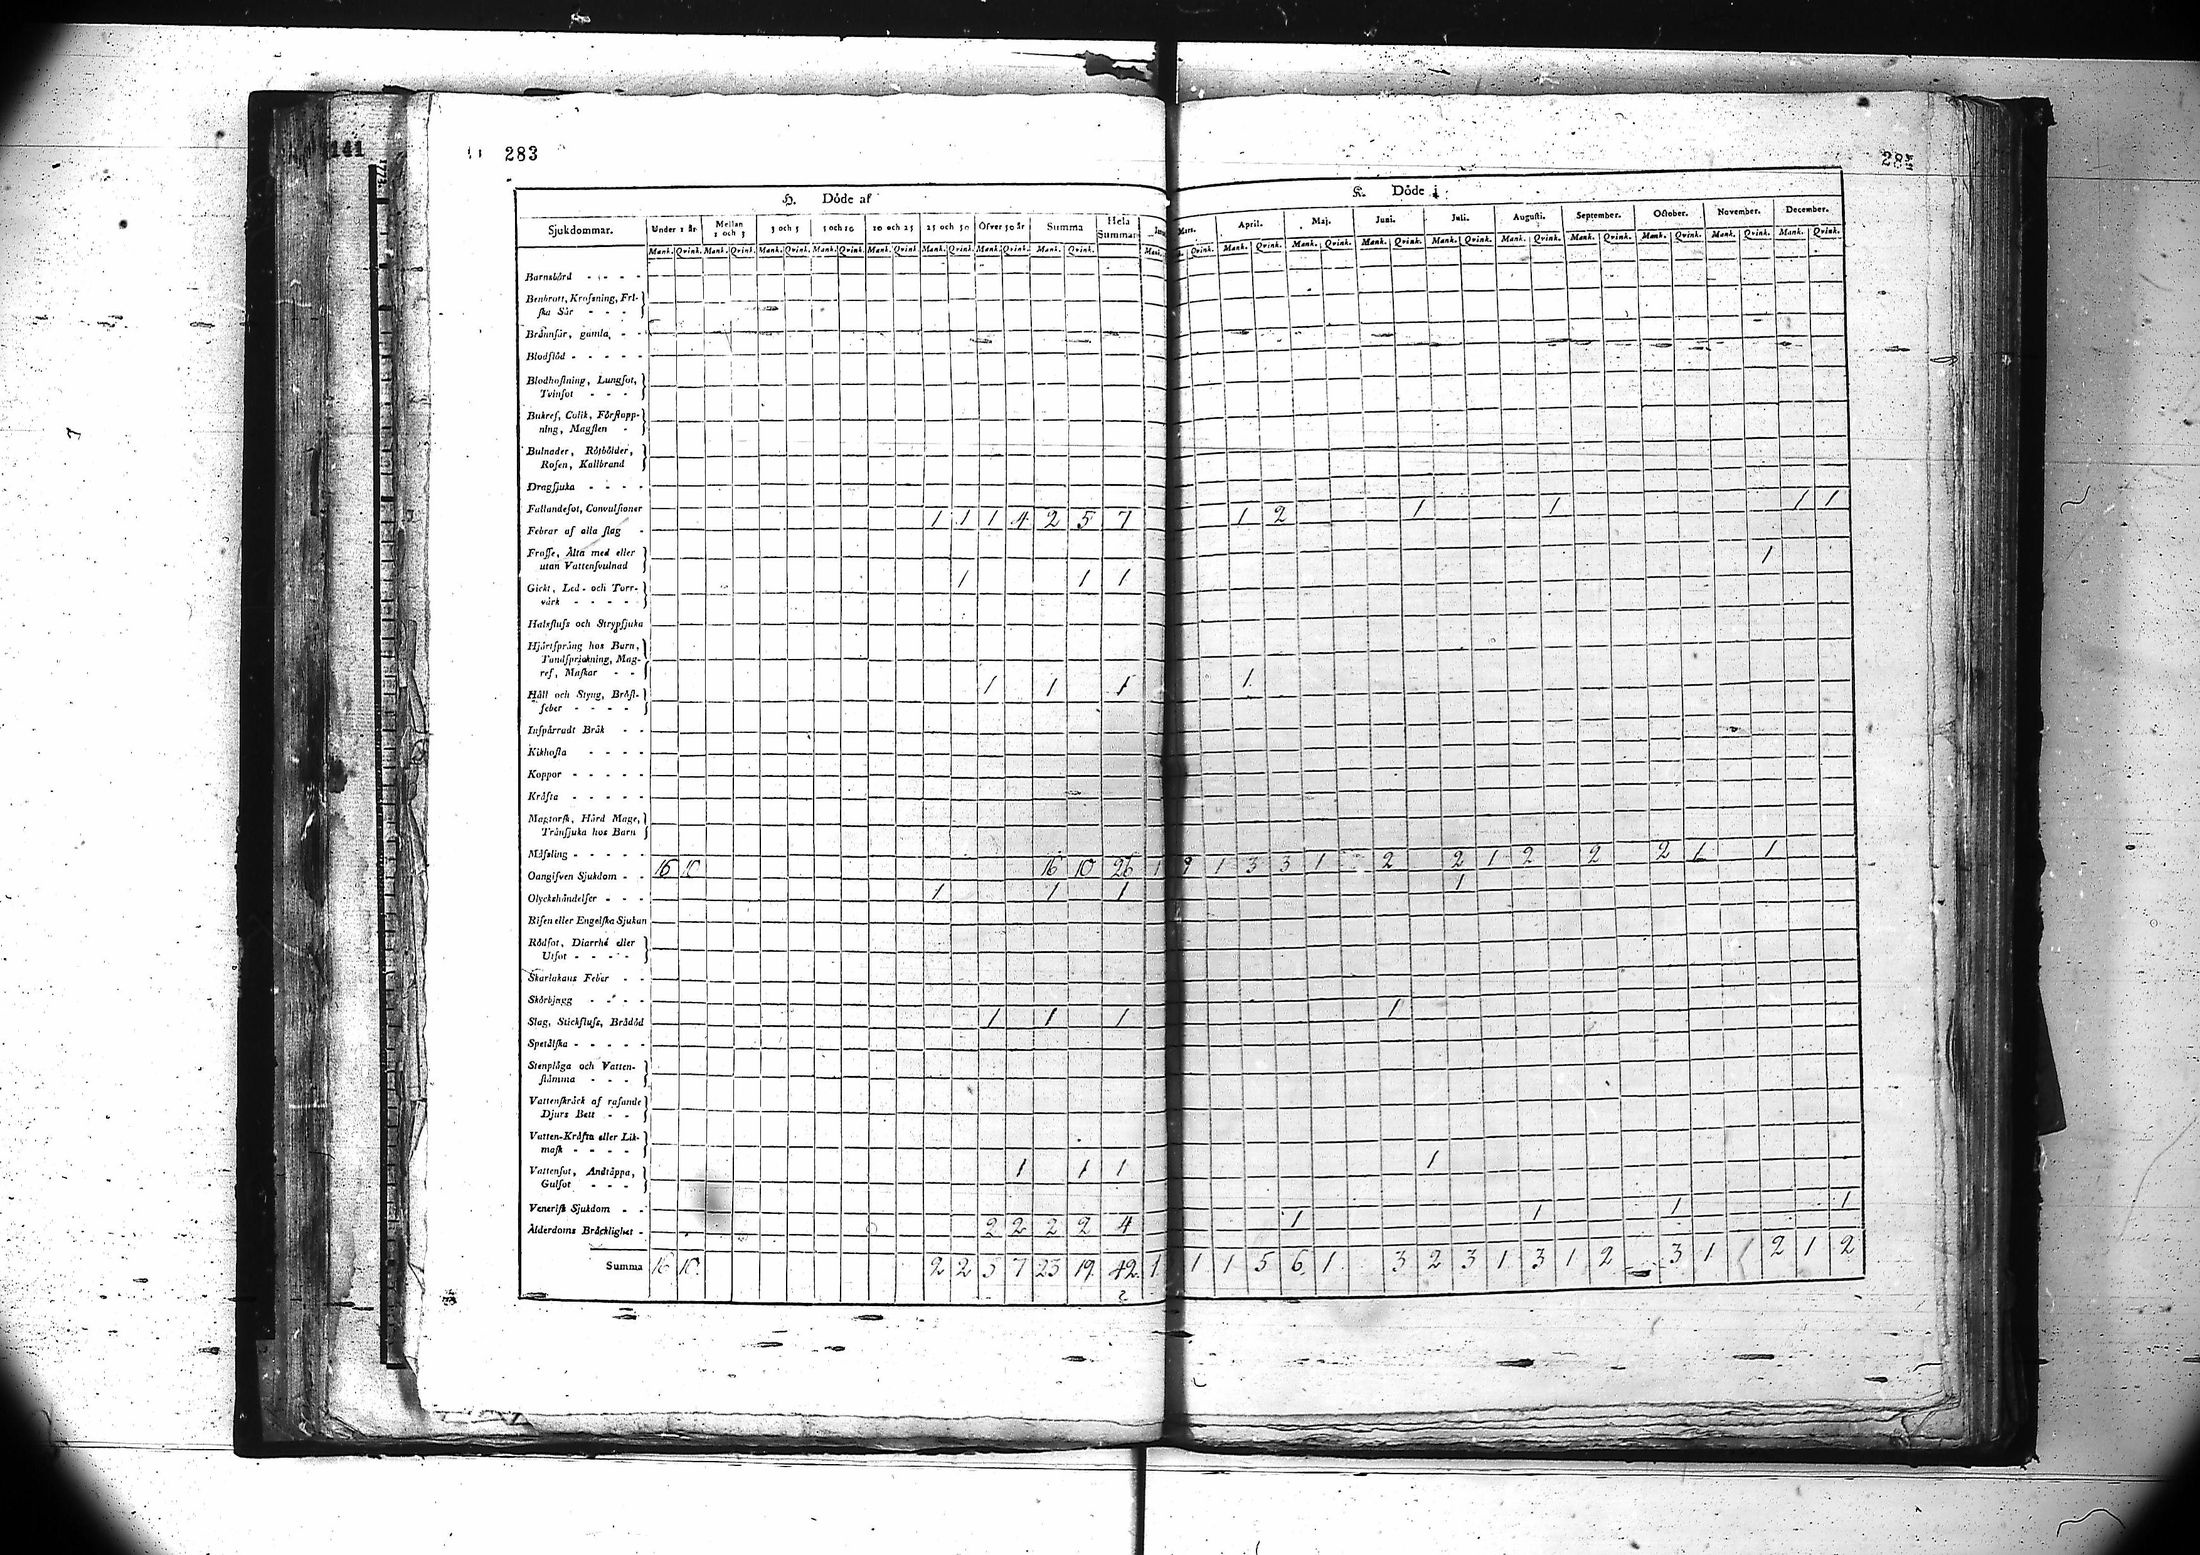 141
283
H. Döde af
K. Döde i
Sjukdommar. Under 1 år Mellan 1 och 3 3 och 5 5 och 10 10 och 25 25 och 50 Öfver 50 år Summa Hela Summan Mars. April. Maj. Juni. Juli. Augusti. September. October. November. December.
Mank. Qvink. Mank. Qvink. Mank. Qvink. Mank. Qvink. Mank. Qvink. Mank. Qvink. Mank. Qvink. Mank. Qvink. Mank. Qvink. Mank. Qvink. Mank. Qvink. Mank. Qvink. Mank. Qvink. Mank. Qvink. Mank. Qvink. Mank. Qvink. Mank. Qvink. Mank. Qvink.
Barnsbörd - - - -
Benbrott, Krossning, Fri-
ska Sår - - -
Brännsår, gamla, - -
Blodflöd - - - - -
Blodhostning, Lungsot,
Tvinsot - - -
Bukref, Colik, Förstopp-
ning, Magsten -
Bulnader, Rötbölder,
Rosen, Kallbrand
Dragsjuka - - - -
Fallandesot, Convulsioner
Febrar af alla slag - 1 1 1 4 2 5 7 1 2 1 1 1 1
Frosse, Älta med eller
utan Vattensvulnad
Gickt, Led- och Torr- 1 1 1 1
värk - - - - -
Halsfluss och Strypsjuka
Hjärtsprång hos Barn,
Tandsprickning, Mag-
ref, Maskar - -
Håll och Styng, Bröst- 1 1 1 1
feber - - - -
Inspärradt Bråk - -
Kikhosta - - - -
Koppor - - - - -
Kräfta - - - - -
Magtorsk, Hård Mage,
Trånsjuka hos Barn
Mässling - - - - -
Oangifven Sjukdom - - 16 10 16 10 26 1 1 3 3 1 2 2 1 2 2 2 1 1
Olyckshändelser - - - 1 1 1 1
Risen eller Engelska Sjukan
Rödsot, Diarrhé eller
Utsot - - - -
Skarlakans Feber - -
Skörbjugg - - - -
Slag, Stickfluss, Brådöd 1 1 1 1
Spetälska - - - - -
Stenplåga och Vatten-
stämma - - -
Vattenskräck af rasande
Djurs Bett - -
Vatten-Kräfta eller Lik-
mask - - - -
Vattensot, Andtäppa, 1 1 1 1
Gulsot - - -
Venerisk Sjukdom - -
Ålderdoms Bräcklighet - 2 2 2 2 4 1 1 1 1
Summa 16 10 2 2 5 7 23 19 42 1 1 1 5 6 1 3 2 3 1 3 1 2 3 1 2 1 2